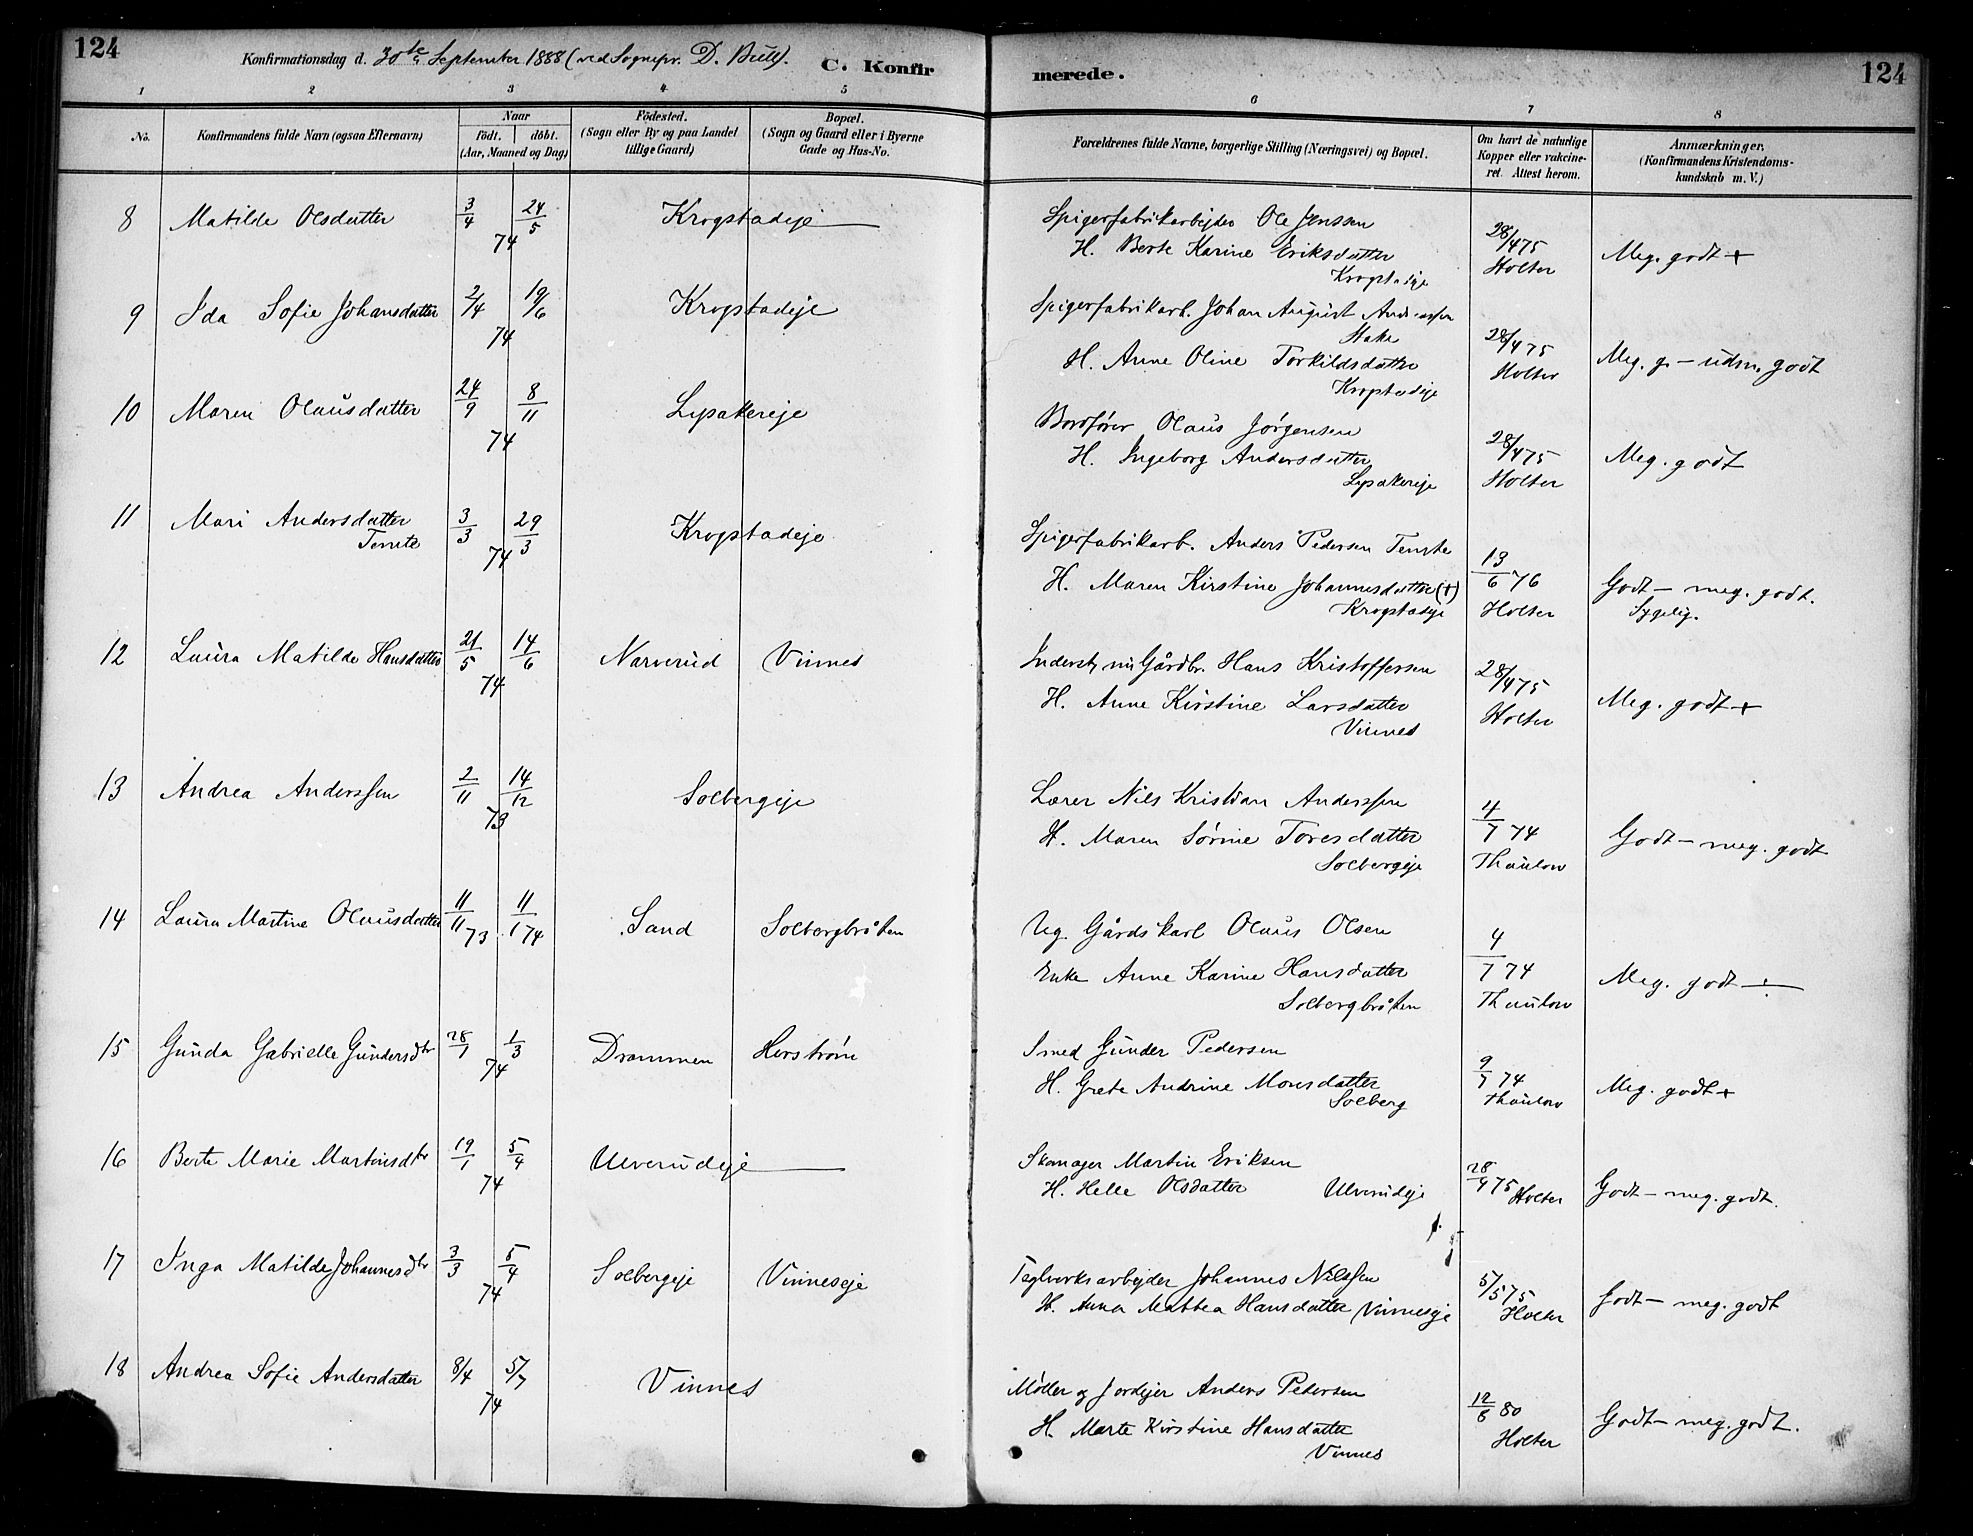 124
Konfirmationsdag d. 30te September 1888 (ved Sognepr. D. Bull).
C. Konfirmerede.
124
1 2 3 4 5 6 7 8
No.
Konfirmandens fulde Navn (ogsaa Efternavn)
Naar
födt. döbt.
(Aar, Maaned og Dag)
Födested.
(Sogn eller By og paa Landet
tillige Gaard)
Bopæl.
(Sogn og Gaard eller i Byerne
Gade og Hus-No.
Forældrenes fulde Navne, borgerlige Stilling (Næringsvei) og Bopæl.
Om havt de naturlige
Kopper eller vakcine-
ret. Attest herom.
Anmærkninger.
(Konfirmandens Kristendoms-
kundskab m. V.)
8 Matilde Olsdatter 3/4 24/5 74 Krogstadeje
Spigerfabrikarbejder Ole Jenssen
H. Berte Karine Eriksdatter
Krogstadeje
28/4 75
Holter
Meg. godt +
9 Ida Sofie Johansdatter 2/4 19/6 74 Krogstadeje
Spigerfabrikarb. Johan August Andreassen
Stake
H. Anne Oline Torkildsdatter
Krogstadeje
28/4 75
Holter
Meg. g. – udm. godt
10 Maren Olausdatter 24/9 8/11 74 Lysakereje
Bordfører Olaus Jörgensen
H. Ingeborg Andersdatter
Lysakereje
28/4 75
Holter
Meg. godt
11 Mari Andersdatter
3/3 29/3 74 Krogstadeje
Spigerfabrikarb. Anders Pedersen
H. Maren Kirstine Johannesdatter (+)
Krogstadeje
13/6 76
Holter
Godt – meg. godt.
Sygelig.
12 Laura Matilde Hansdatter 21/5 14/6 74 Narverud Vinnes
Inderst, Gårdbr. Hans Kristoffersen
H. Anne Kirstine Larsdatter
Vinnes
28/4 75
Holter
Meg. godt +
13 Andrea Anderssen 2/11 14/12 73 Solbergeje
Lærer Nils Kristian Anderssen
H. Maren Sörine Toresdatter
Solbergeje
4/7 74
Thaulow
Godt – meg. godt
14 Laura Martine Olausdatter 11/11 73 11/1 74 Sand Solbergbråten
Ug. Gårdskarl Olaus Olsen
Enke Anne Karine Hansdatter
Solbergbråten
4/7 74
Thaulow
Meg. godt ÷
15 Gunda Gabrielle Gundersdtr 28/1 1/3 74 Drammen Herström
Smed Gunder Pedersen
H. Grete Andrine Monsdatter
Solberg
9/7 74
Thaulow
Meg. godt +
16 Berte Marie Martinsdtr 19/1 5/4 74 Ulverudeje
Skomager Martin Eriksen
H. Helle Olsdatter Ulverudeje
28/4 75 Holter
Godt – meg. godt.
17 Inga Matilde Johannesdtr 3/3 5/4 74 Solbergeje Vinneseje
Teglverksarbejder Johannes Nilssen
H. Anna Mathea Hansdatter Vinneseje
5/5 75
Holter
Godt – meg. godt
18 Andrea Sofie Andersdatter 8/4 5/7 74 Vinnes
Möller og Jordejer Anders Pedersen
H. Marte Kirstine Hansdatter
Vinnes
12/8 80
Holter
Godt – meg. godt.